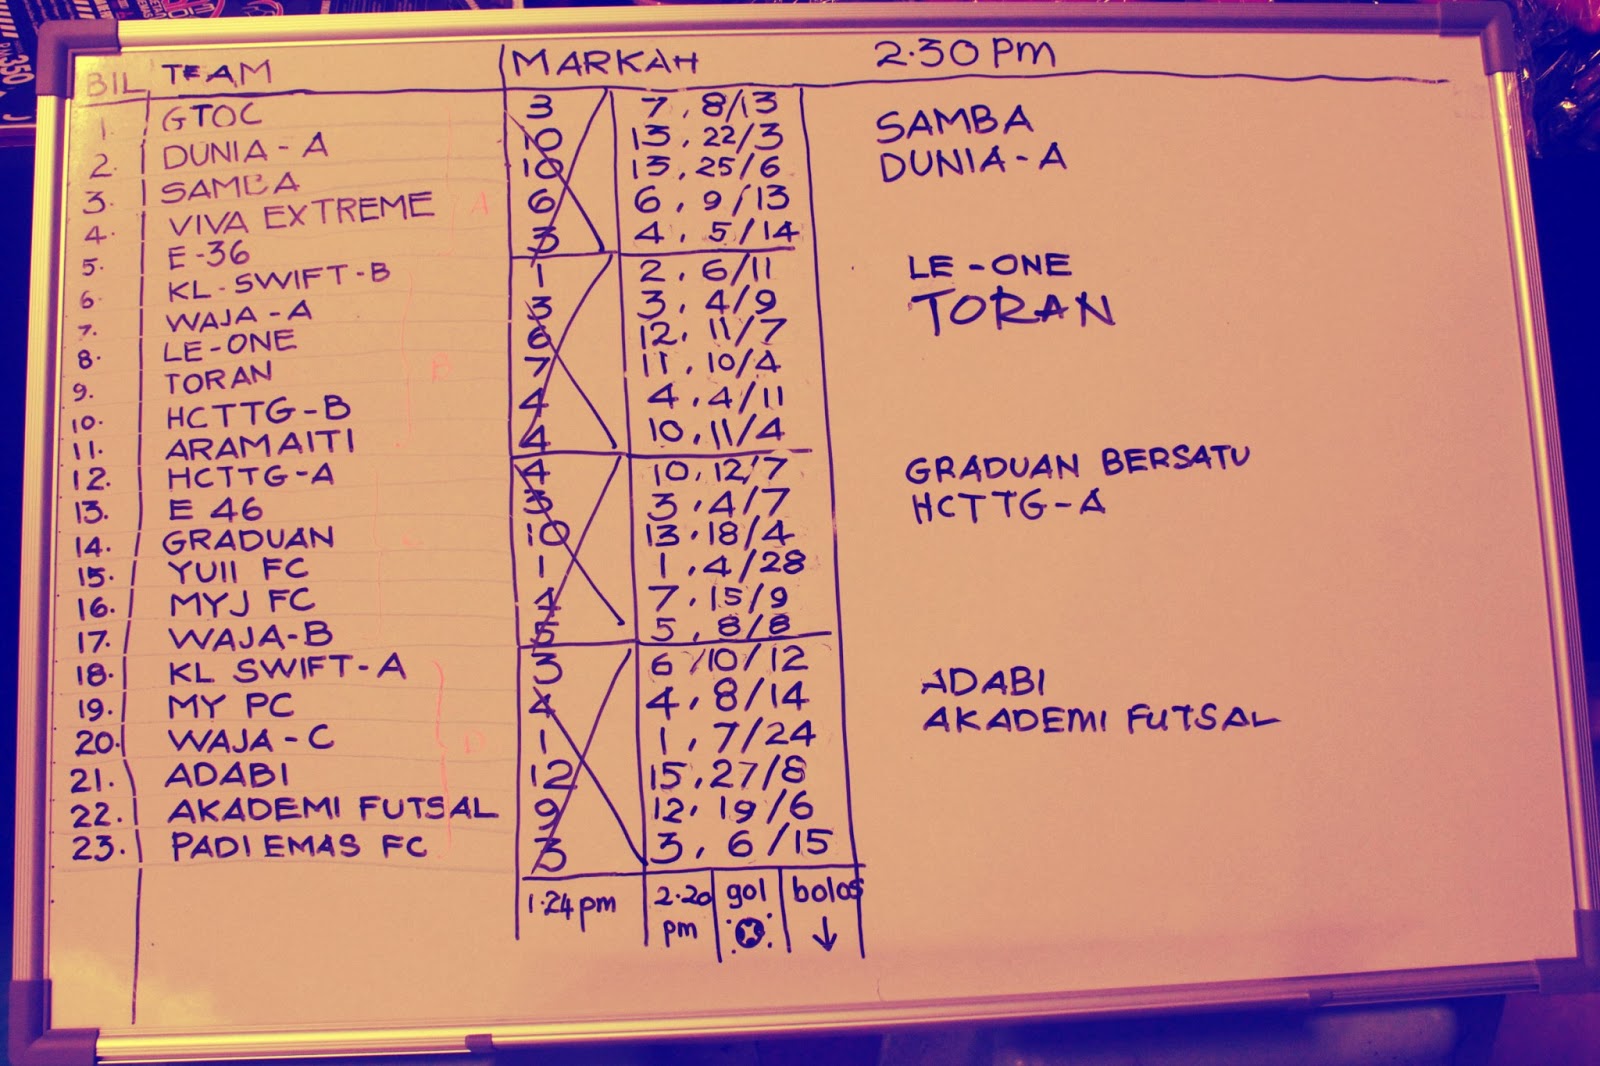 BIL TEAM MARKAH 2.30 PM
1. GTOC 3 7, 8/13 SAMBA
2. DUNIA - A 10 13, 22/3 DUNIA - A
3. SAMBA 10 13, 25/6
4. VIVA EXTREME 6 6, 9/13 A
5. E-36 3 4, 5/14
6. KL-SWIFT-B 1 2, 6/11 LE-ONE
7. WAJA-A 3 3, 4/9 TORAN
8. LE-ONE 6 12, 11/7
9. TORAN 7 11, 10/4 B
10. HCTTG-B 4 4, 4/11
11. ARAMAITI 4 10, 11/4
12. HCTTG-A 4 10, 12/7 GRADUAN BERSATU
13. E 46 3 3, 4/7 HCTTG-A
14. GRADUAN 10 13, 18/4 C
15. YUII FC 1 1, 4/28
16. MYJ FC 4 7, 15/9
17. WAJA-B 5 5, 8/8
18. KL SWIFT-A 3 6, 10/12 ADABI
19. MY PC 4 4, 8/14 AKADEMI FUTSAL
20. WAJA-C 1 1, 7/24 D
21. ADABI 12 15, 27/8
22. AKADEMI FUTSAL 9 12, 19/6
23. PADI EMAS FC 3 3, 6/15
1.24pm 2.20 pm gol bolos
350